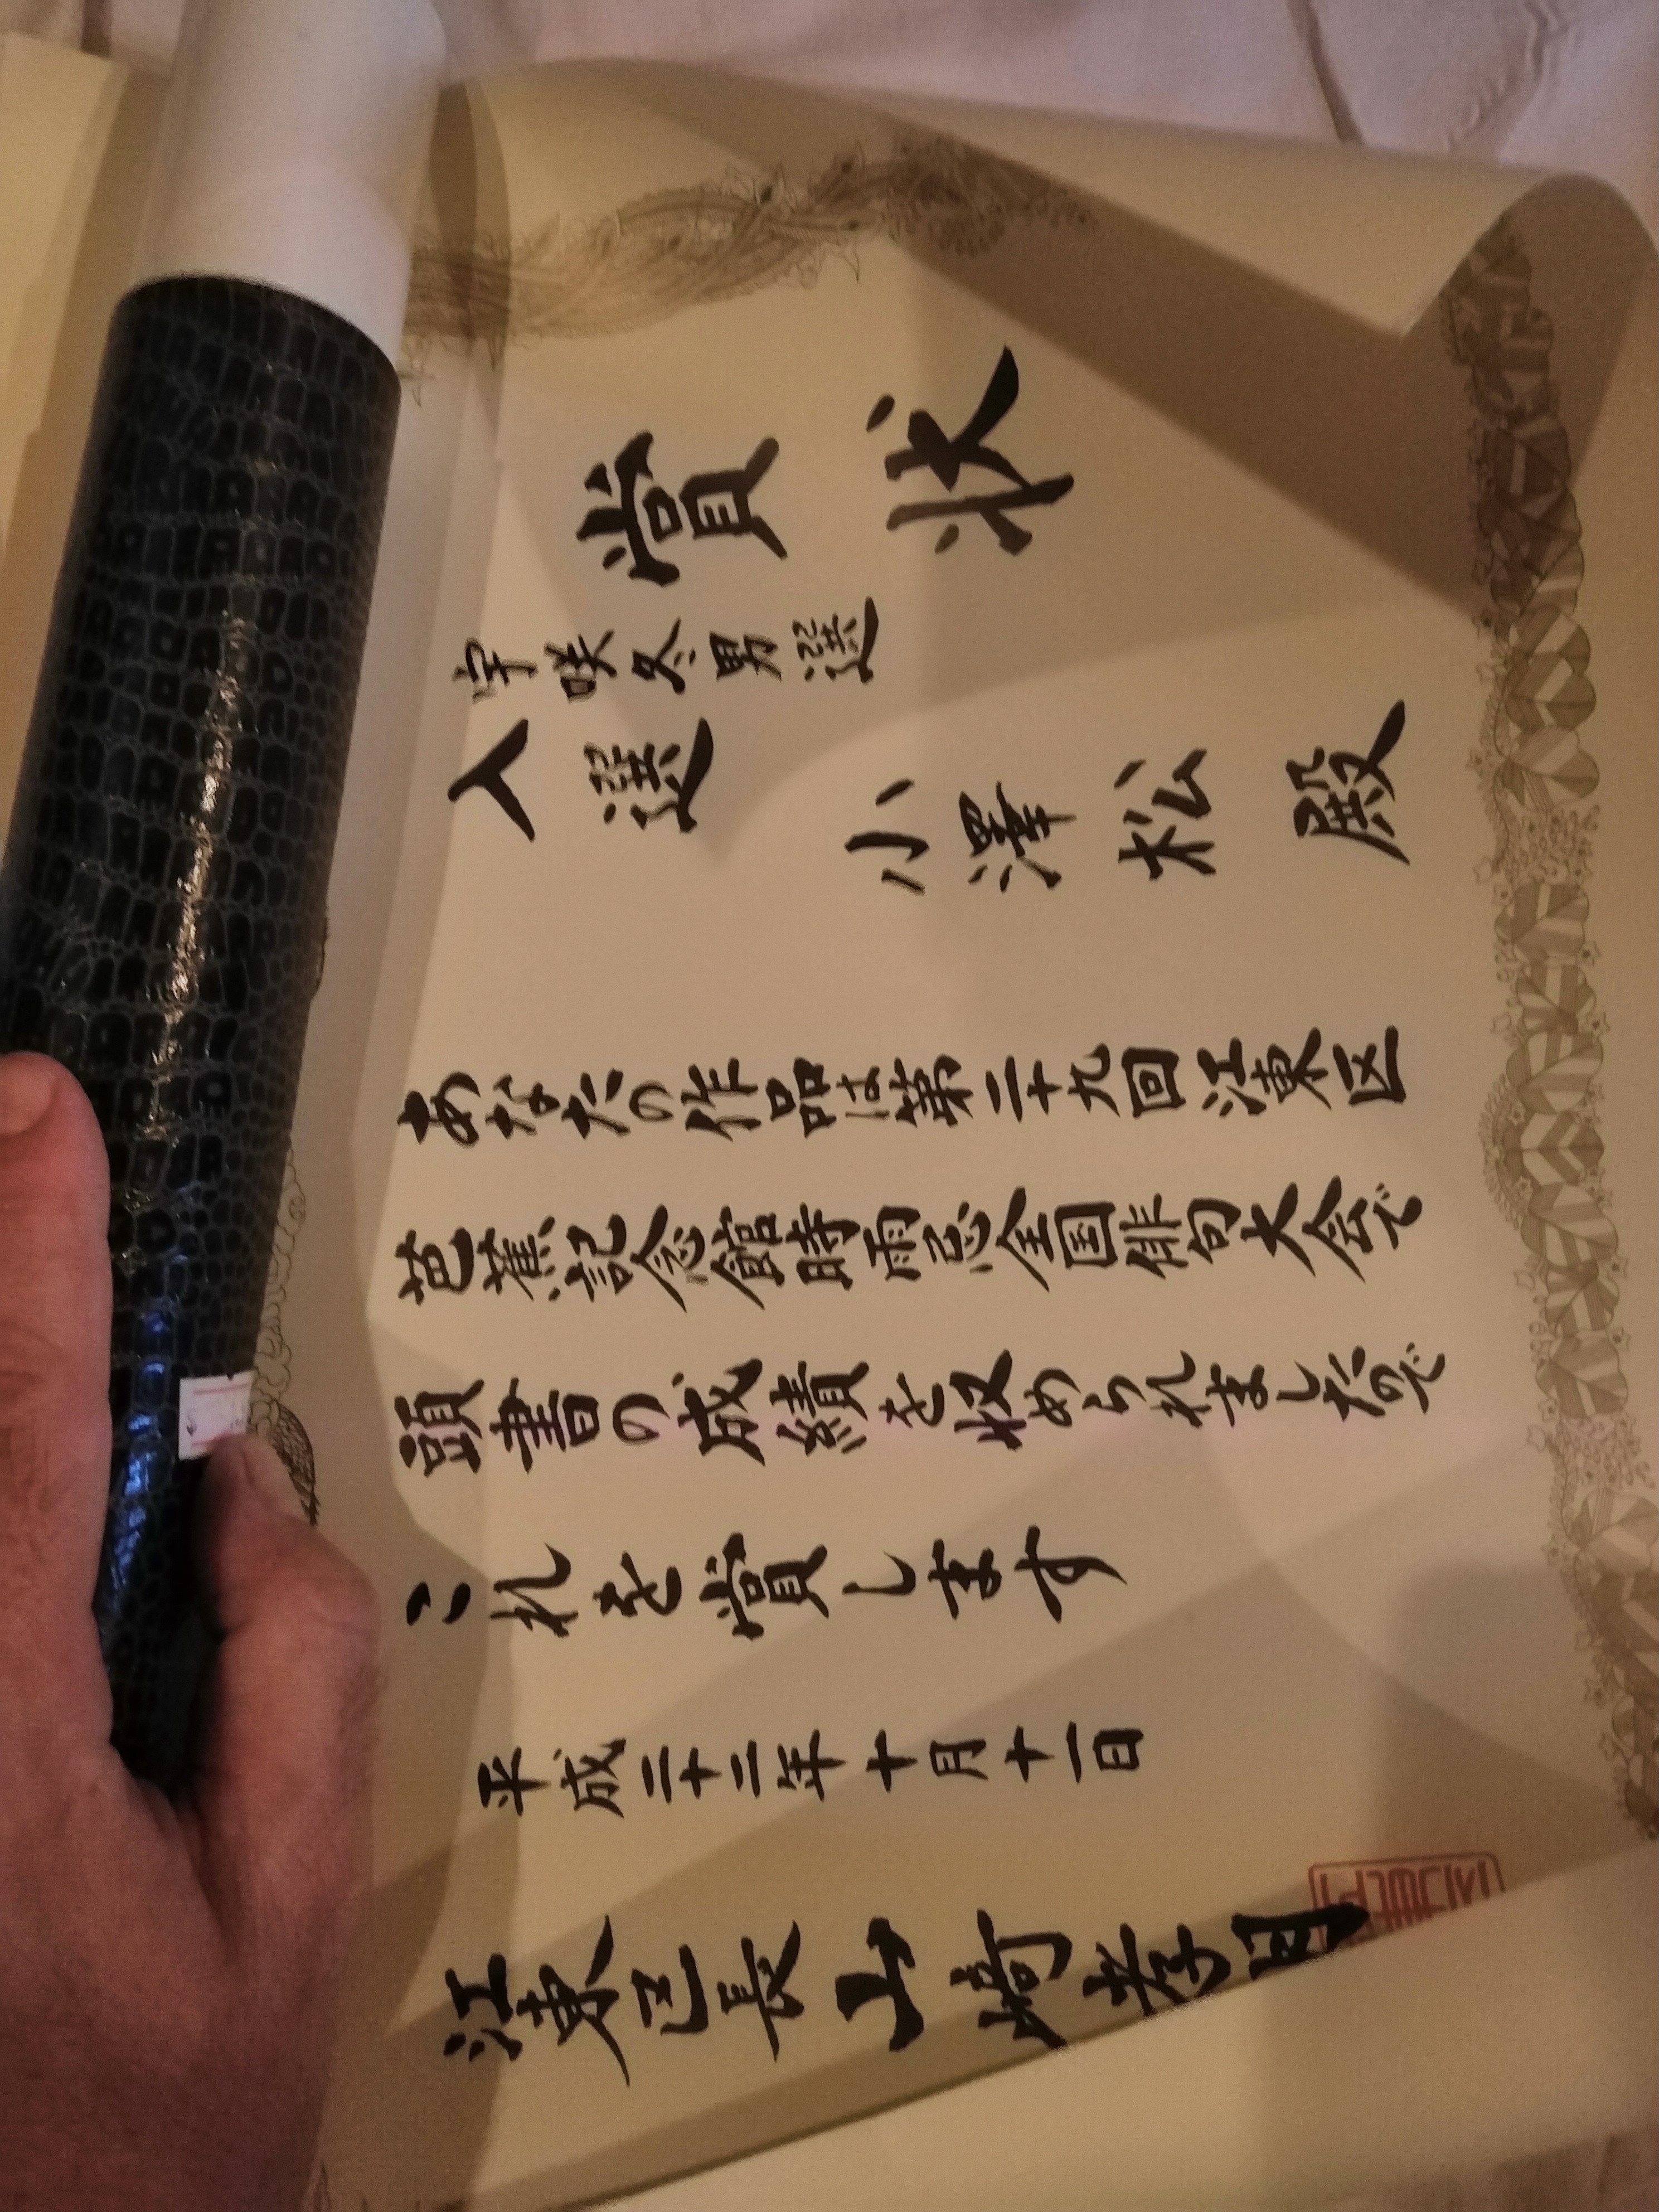 賞状
宇咲冬男選
入選
小澤松殿
あなたの作品は第二十九回江東区
芭蕉記念館時雨忌全国俳句大会で
頭書の成績を収められましたので
これを賞します
平成二十二年十月十一日
江東区長山崎孝明